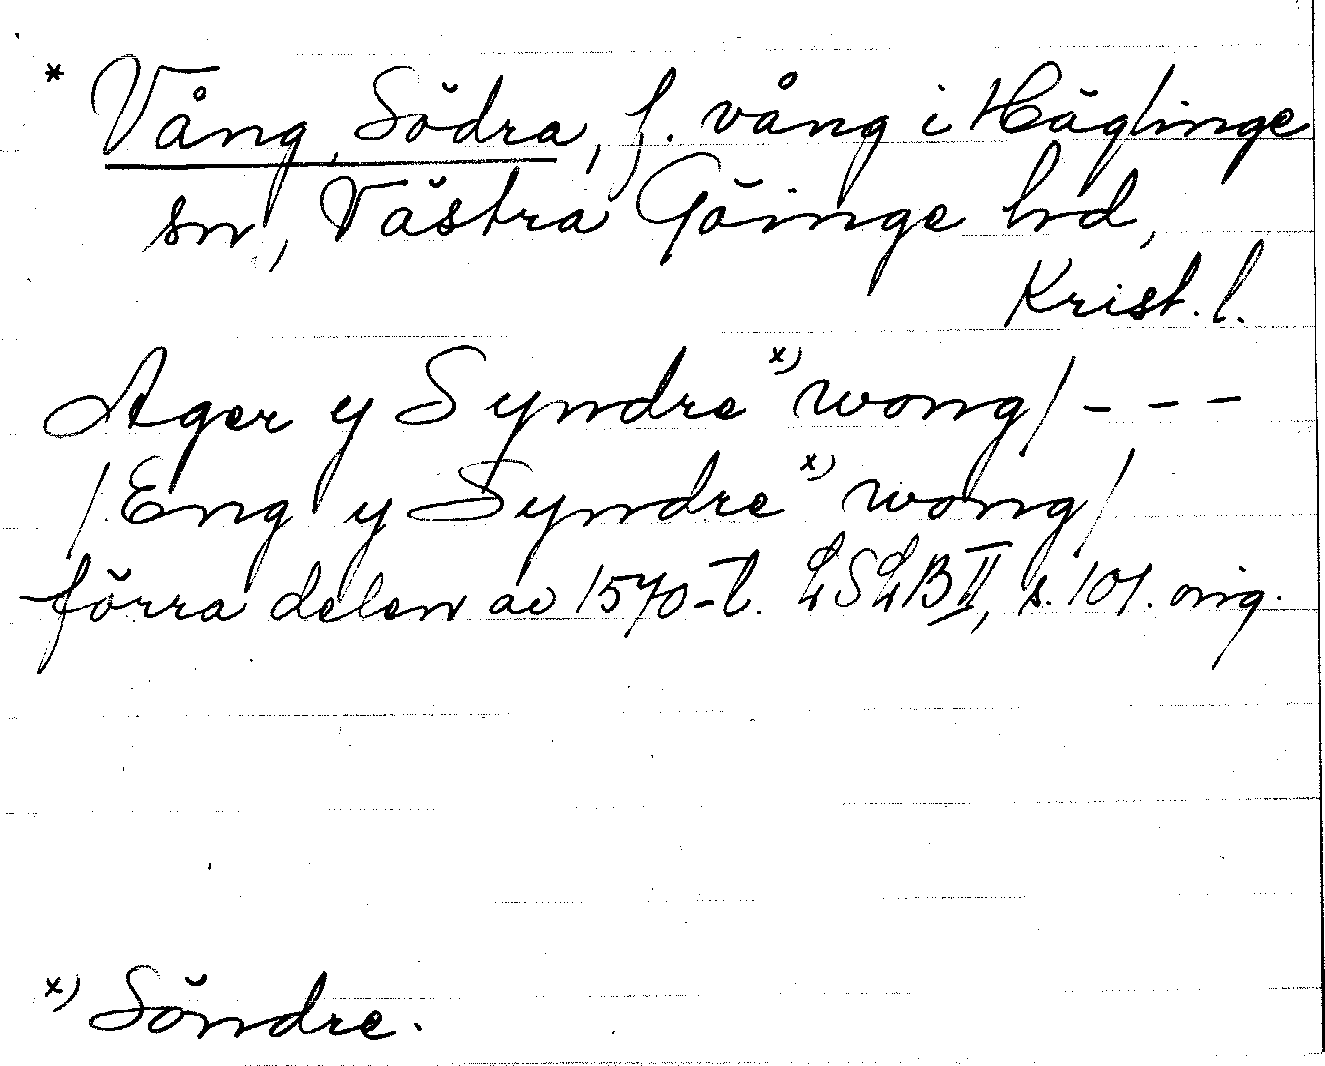 * Vång, Södra, f. vång i Häglinge
sn, Västra Göinge hd,
Krist. l.
Ager y Syndre x) wong/ - - -
/Eng y Syndre x) wong/
förra delen av 1570-t. LSLB II, s. 101. orig.
x) Söndre.